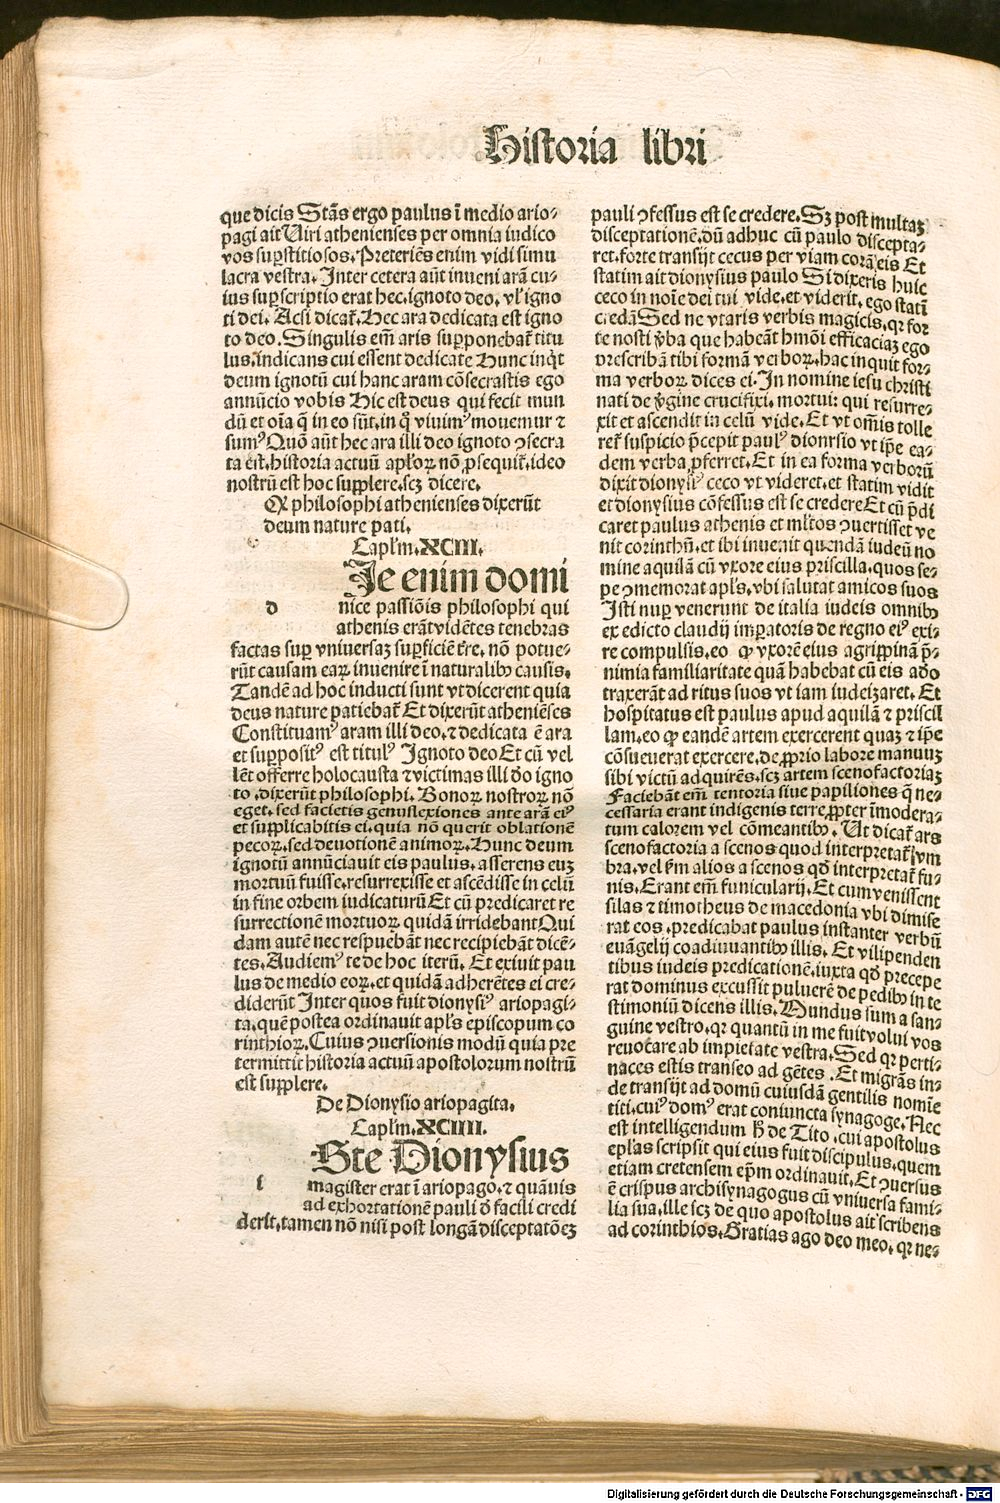 Historia libri
que dicis Stās ergo paulus ī medio ario⸗
pagi ait Uiri athenienses per omnia iudico
vos suꝑstitiosos. Preteriēs enim vidi simu
lacra vestra. Inter cetera aūt inueni arā cu⸗
ius suꝑscriptio erat hec. ignoto deo. vl' igno
ti dei. Acsi dicat᷑. Hec ara dedicata est igno
to deo. Singulis em̄ aris suꝑponebat᷑ titu
lus. indicans cui essent dedicate Hunc inq̇t
deum ignotū cui hanc aram cōsecrastis ego
annūcio vobis Hic est deus qui fecit mun
dū et oīa q̄ in eo sūt. in q̊ viuimꝰ mouemur ⁊
sumꝰ Quō aūt hec ara illi deo ignoto ꝯsecra
ta est. historia actuū apl'oꝝ nō ꝓsequit᷑. ideo
nostrū est hoc supplere. scꝫ dicere.
Qꝫ philosophi athenienses dixerūt
deum nature pati.
Capl'm. XCIII.
d
Ie enim domi
nice passiōis philosophi qui
athenis erāt vidētes tenebras
factas suꝑ vniuersaꝫ suꝑficiē t're. nō potue⸗
rūt causam eaꝝ inuenire ī naturalibꝰ causis.
Tandē ad hoc inducti sunt vt dicerent quia
deus nature patiebat᷑ Et dixerūt atheniēses
Constituamꝰ aram illi deo. ⁊ dedicata ē ara
et suppositꝰ est titulꝰ Ignoto deo Et cū vel
lēt offerre holocausta ⁊ victimas illi d'o igno
to. dixerūt philosophi. Bonoꝝ nostroꝝ nō
eget. sed facietis genuflexiones ante arā eiꝰ
et supplicabitis ei. quia nō querit oblationē
pecoꝝ. sed deuotionē animoꝝ. Hunc deum
ignotū annūciauit eis paulus. asserens euꝫ
mortuū fuisse. resurrexisse et ascēdisse in celū
in fine orbem iudicaturū Et cū predicaret re
surrectionē mortuoꝝ quidā irridebant Qui
dam autē nec respuebāt nec recipiebāt dicē⸗
tes. Audiemꝰ te de hoc iterū. Et exiuit pau
lus de medio eoꝝ. et quidā adherētes ei cre⸗
diderūt Inter quos fuit dionysiꝰ ariopagi⸗
ta. quē postea ordinauit apl's episcopum co
rinthioꝝ. Cuius ꝯuersionis modū quia pre
termittit historia actuū apostolorum nostrū
est supplere.
De Dionysio ariopagita.
Capl'm. XCIIII.
i
Ste Dionysius
magister erat ī ariopago. ⁊ quāuis
ad exhortationē pauli d' facili credi
derit. tamen nō nisi post longā disceptatōeꝫ
pauli ꝯfessus est se credere. Sꝫ post multaꝫ
disceptationē. dū adhuc cū paulo discepta⸗
ret. forte transijt cecus per viam corā eis Et
statim ait dionysius paulo Si dixeris huic
ceco in noīe dei tui vide. et viderit. ego statī
credā Sed ne vtaris verbis magicis. qꝛ for
te nosti v̄ba que habeāt hm̄oi efficaciaꝫ ego
prescribā tibi formā verboꝝ. hac inquit for⸗
ma verboꝝ dices ei. In nomine iesu christi
nati de v̓gine crucifixi. mortui: qui resurre⸗
xit et ascendit in celū vide. Et vt om̄is tolle
ret᷑ suspicio p̄cepit paulꝰ dionysio vt ip̄e ea⸗
dem verba ꝓferret. Et in ea forma verborū
dixit dionysiꝰ ceco vt videret. et statim vidit
et dionysius cōfessus est se credere Et cū p̄di
caret paulus athenis et ml'tos ꝯuertisset ve
nit corinthū. et ibi inuenit quendā iudeū no
mine aquilā cū vxore eius priscilla. quos se⸗
pe ꝯmemorat apl's. vbi salutat amicos suos
Isti nuꝑ venerunt de italia iudeis omnibꝰ
ex edicto claudij imperatoris de regno eiꝰ exi⸗
re compulsis. eo qꝫ vxorē eius agrippinā p̄⸗
nimia familiaritate quā habebat cū eis ad'o
traxerāt ad ritus suos vt iam iudeizaret. Et
hospitatus est paulus apud aquilā ⁊ priscil
lam. eo qꝫ eandē artem exercerent quaꝫ ⁊ ip̄e
cōsueuerat exercere. de ꝓprio labore manuuꝫ
sibi victū adquirēs. scꝫ artem scenofactoriaꝫ
Faciebāt em̄ tentoria siue papiliones q̄ ne⸗
cessaria erant indigenis terre ꝓpter īmodera⸗
tum calorem vel cōmeantibꝰ. Ut dicat᷑ ars
scenofactoria a scenos quod interpretat᷑ vm
bra. vel f'm alios a scenos qd̄ interpretat᷑ fu⸗
nis. Erant em̄ funicularij. Et cum venissent
silas ⁊ timotheus de macedonia vbi dimise
rat eos. predicabat paulus instanter verbū
euāgelij coadiuuantibꝰ illis. Et vilipenden
tibus iudeis predicationē. iuxta qd̄ precepe
rat dominus excussit puluerē de pedibꝰ in te
stimoniū dicens illis. Mundus sum a san⸗
guine vestro. qꝛ quantū in me fuit volui vos
reuocare ab impietate vestra. Sed qꝛ perti⸗
naces estis transeo ad gētes. Et migrās in⸗
de transijt ad domū cuiusdā gentilis nomīe
titi. cuiꝰ domꝰ erat coniuncta synagoge. Nec
est intelligendum ħ de Tito. cui apostolus
epl'as scripsit qui eius fuit discipulus. quem
etiam cretensem ep̄m ordinauit. Et ꝯuersus
ē crispus archisynagogus cū vniuersa fami⸗
lia sua. ille scꝫ de quo apostolus ait scribens
ad corinthios. Gratias ago deo meo. qꝛ ne⸗
Digitalisierung gefördert durch die Deutsche Forschungsgemeinschaft - DFG